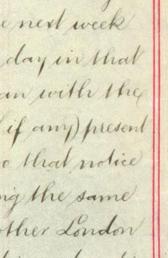 next week
day in that
an with the
if any) present
that notice
ng the same
other London